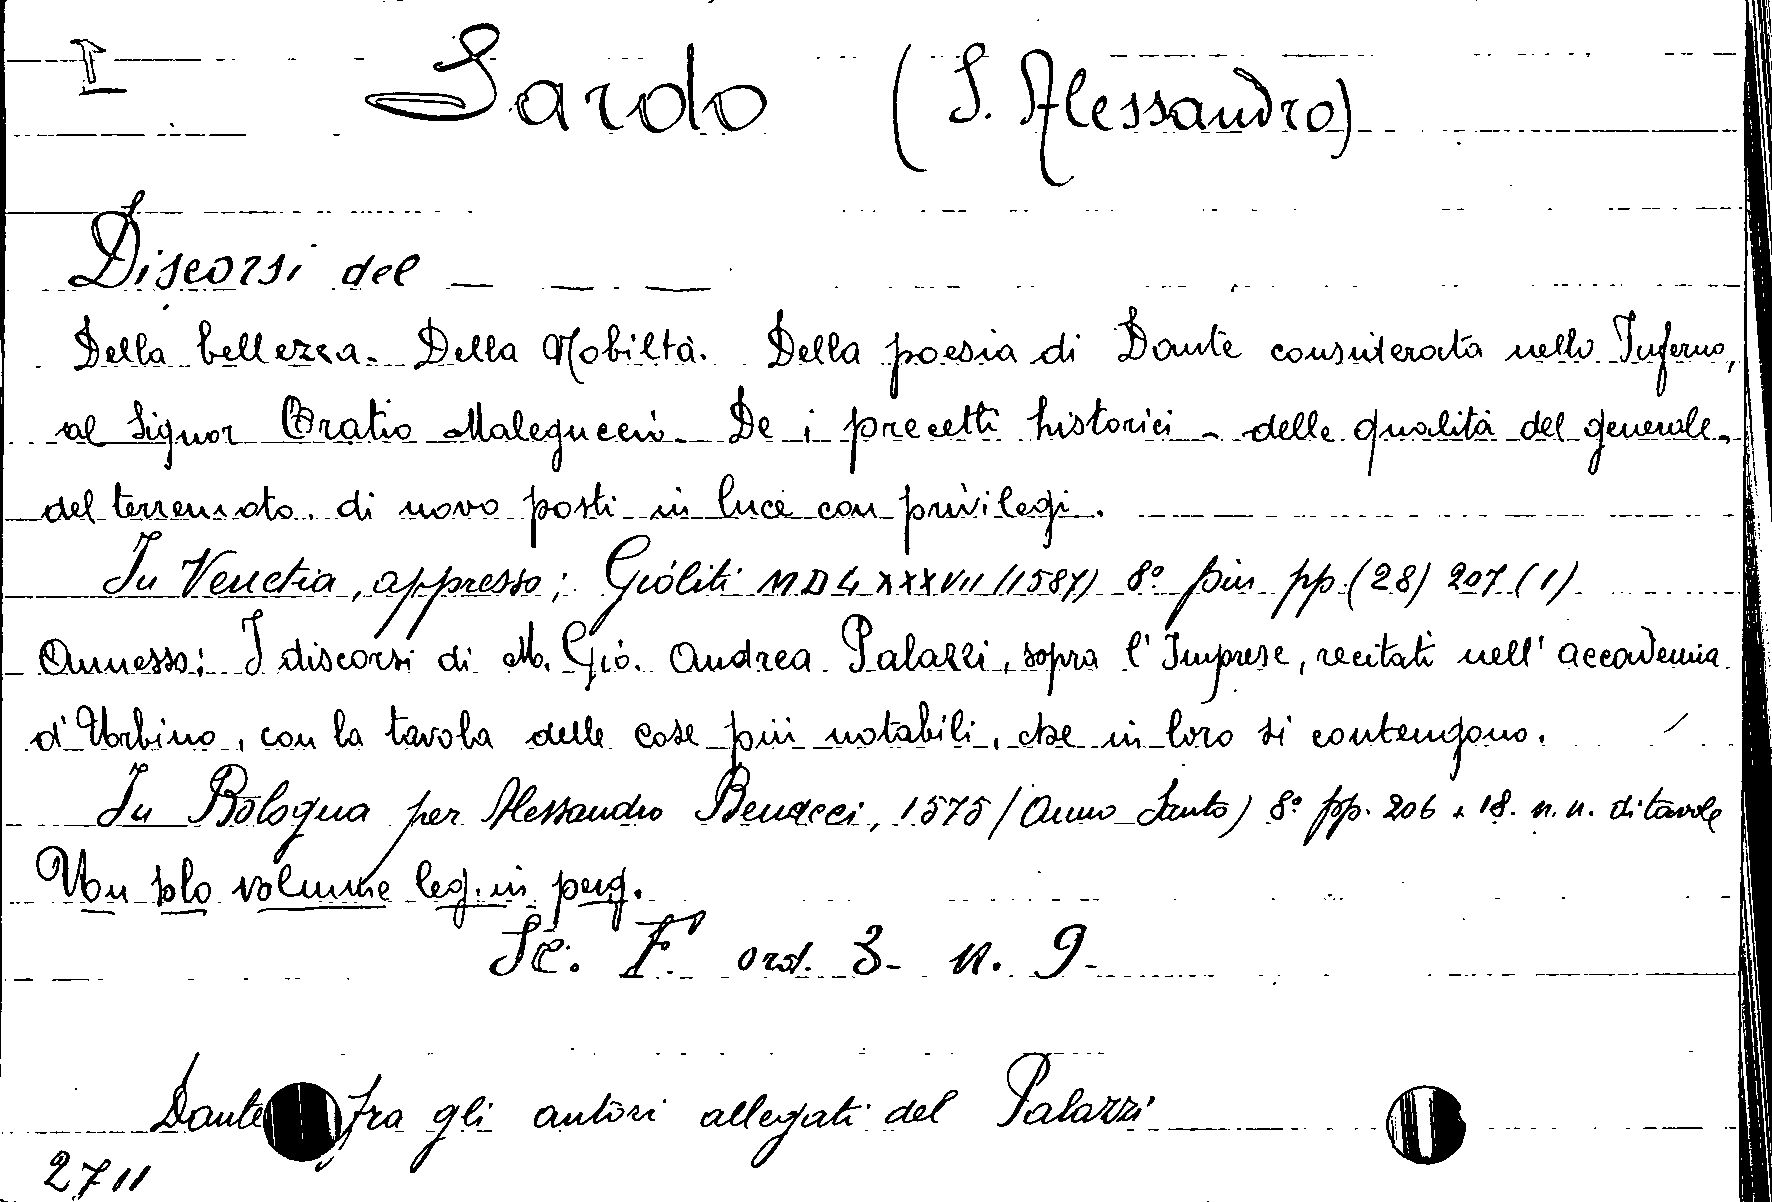 I Sardo (S. Alessandro)
Discorsi del _ _ _
Della bellezza. Della Nobiltà. Della poesia di Dante considerata nello Inferno,
al Signor Oratio Maleguccio. De i precetti historici - delle qualità del generale.
del terremoto. di novo posti in luce con privilegi.
In Venetia, appresso; Gioliti MDLXXXVII (1587) 8° pin pp. (28) 207 (1)
Annesso: I discorsi di M. Gio. Andrea Palazzi, sopra l'Imprese, recitati nell'accademia
d'Urbino, con la tavola delle cose più notabili, che in loro si contengono.
In Bologna per Alessandro Benacci, 1575 (Anno Santo) 8° pp. 206 + 18. n. n. di tavole
Un solo volume leg. in perg.
Sc. F ord. 3- n. 9-
Dante fra gli autori allegati del Palazzi
2711